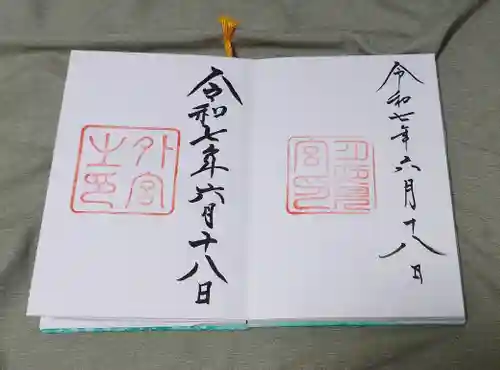 令和七年六月十八日
内宮之印
令和七年六月十八日
外宮之印